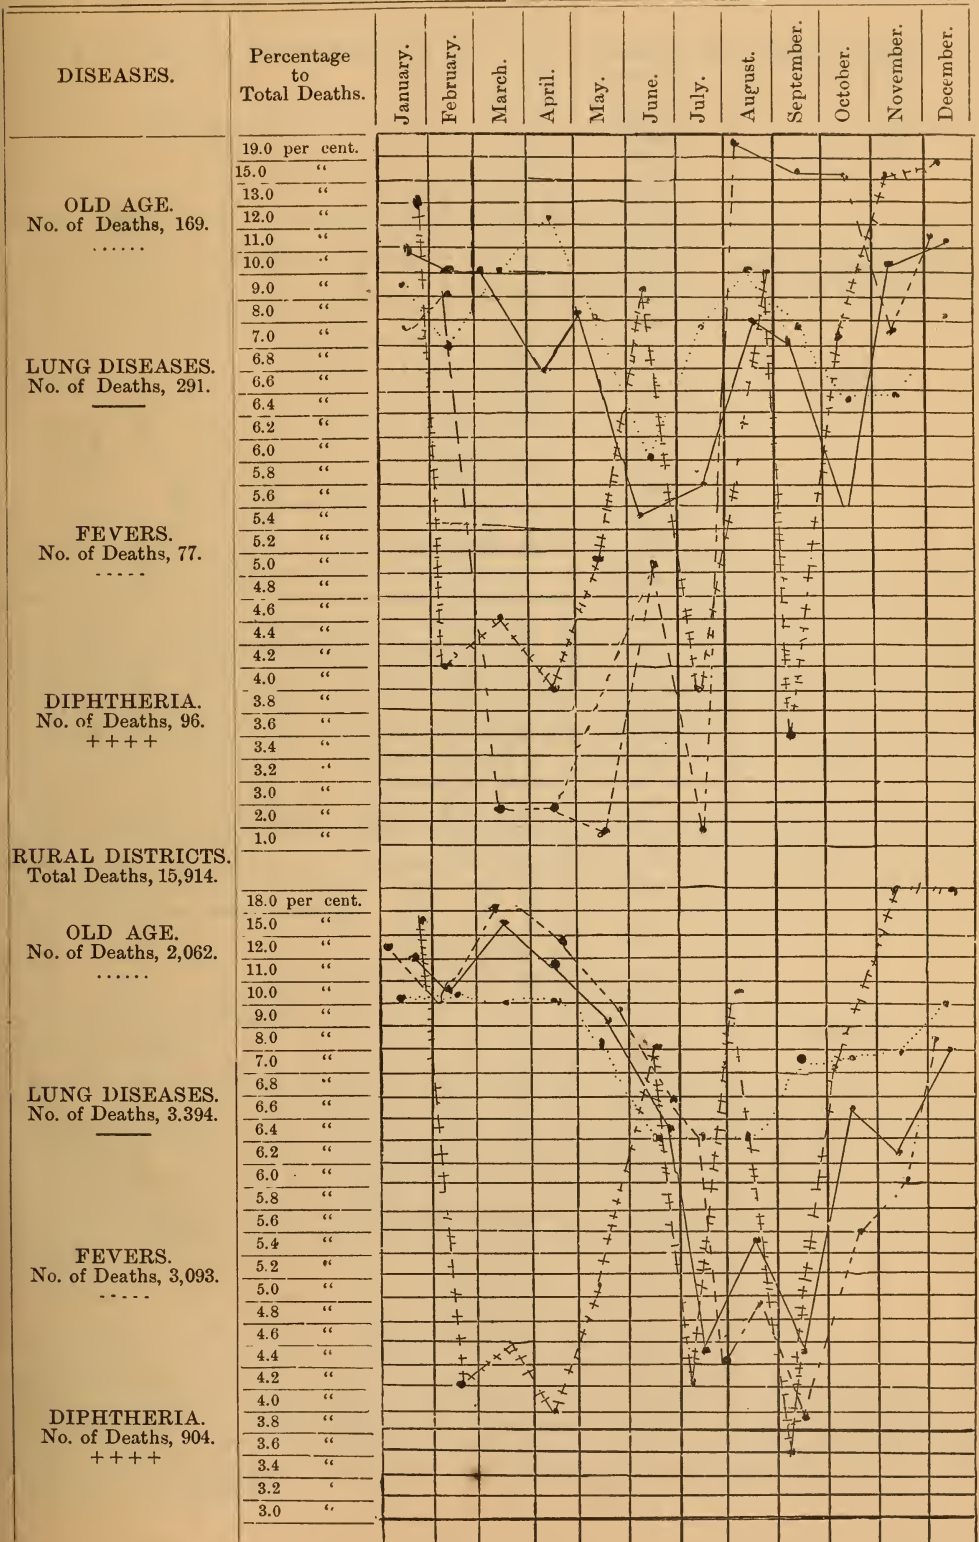 DISEASES.
Percentage
to
Total Deaths.
January.
February.
March.
April.
May.
June.
July.
August.
September.
October.
November.
December.
OLD AGE.
No. of Deaths, 169.
......
LUNG DISEASES.
No. of Deaths, 291.
FEVERS.
No. of Deaths, 77.
-----
DIPHTHERIA.
No. of Deaths, 96.
++++
19.0 per cent.
15.0 “
13.0 “
12.0 “
11.0 “
10.0 “
9.0 “
8.0 “
7.0 “
6.8 “
6.6 “
6.4 “
6.2 “
6.0 “
5.8 “
5.6 “
5.4 “
5.2 “
5.0 “
4.8 “
4.6 “
4.4 “
4.2 “
4.0 “
3.8 “
3.6 “
3.4 “
3.2 “
3.0 “
2.0 “
1.0 “
RURAL DISTRICTS.
Total Deaths, 15,914.
OLD AGE.
No. of Deaths, 2,062.
......
LUNG DISEASES.
No. of Deaths, 3.394.
FEVERS.
No. of Deaths, 3,093.
-----
DIPHTHERIA.
No. of Deaths, 904.
++++
18.0 per cent.
15.0 “
12.0 “
11.0 “
10.0 “
9.0 “
8.0 “
7.0 “
6.8 “
6.6 “
6.4 “
6.2 “
6.0 “
5.8 “
5.6 “
5.4 “
5.2 “
5.0 “
4.8 “
4.6 “
4.4 “
4.2 “
4.0 “
3.8 “
3.6 “
3.4 “
3.2 ‘
3.0 “